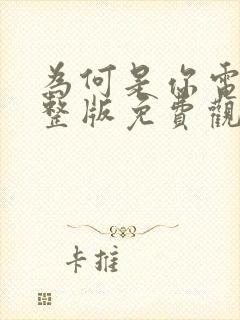 為何是你電
整版免費觀
卡推